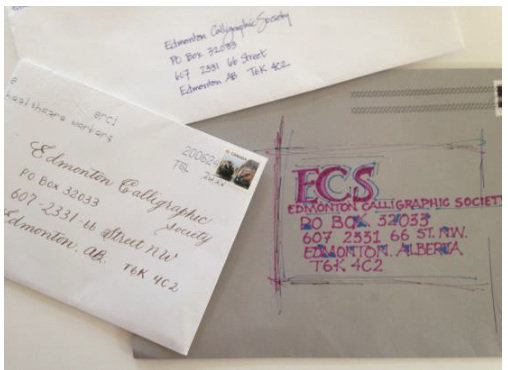 Edmonton Calligraphic Society
PO Box 32033
607 2331 66 Street
Edmonton AB T6K 4C2
erci
healthcare workers
200624
TEL
CANADA
Edmonton Calligraphic
Society
PO Box 32033
607-2331-66 Street NW
Edmonton, AB.
T6K 4C2
ECS
EDMONTON CALLIGRAPHIC SOCIETY
PO BOX 32033
607 2331 66 ST. N.W.
EDMONTON, ALBERTA
T6K 4C2